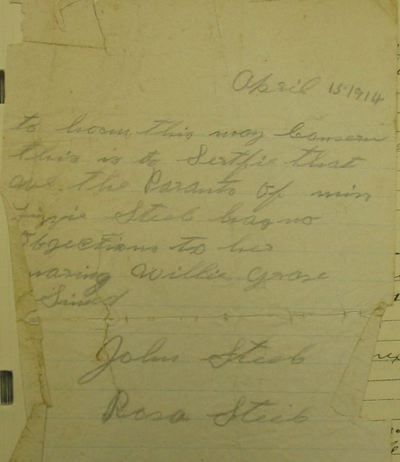 April 15 1914
to hoom this may Consern
this is to Sertfie that
we the Parants of miss
Lizzie Steib has no
objections to her
maring Willie Grose
Sined
John Steib
Rosa Steib